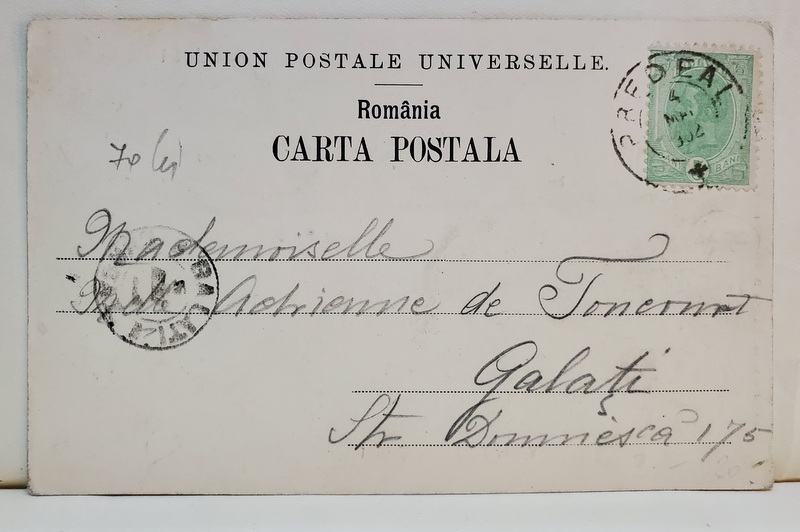 UNION POSTALE UNIVERSELLE.
România
CARTA POSTALA
PREDEAL
MAI
902
BANI
70 lei
Mademoiselle
GALATI
Adrienne de Toncourt
Galați
Str Domnèsca 175